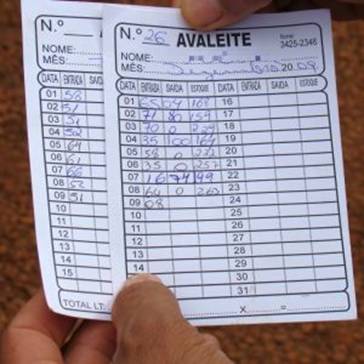 N.º
NOME:
MÊS:
DATA ENTRADA SAÍDA
01 58
02 51
03 51
04 52
05 64
06 61
07 66
08 52
09 51
10
11
12
13
14
15
TOTAL LT:
N.º 26 AVALEITE fone: 3425-2346
NOME:
MÊS: Dezembro 20 09
DATA ENTRADA SAÍDA ESTOQUE DATA ENTRADA SAÍDA ESTOQUE
01 65 04 168 16
02 71 80 159 17
03 70 0 229 18
04 35 100 164 19
05 58 0 222 20
06 35 0 257 21
07 16 74 199 22
08 64 0 263 23
09 08 24
10 25
11 26
12 27
13 28
14 29
30
31
X =